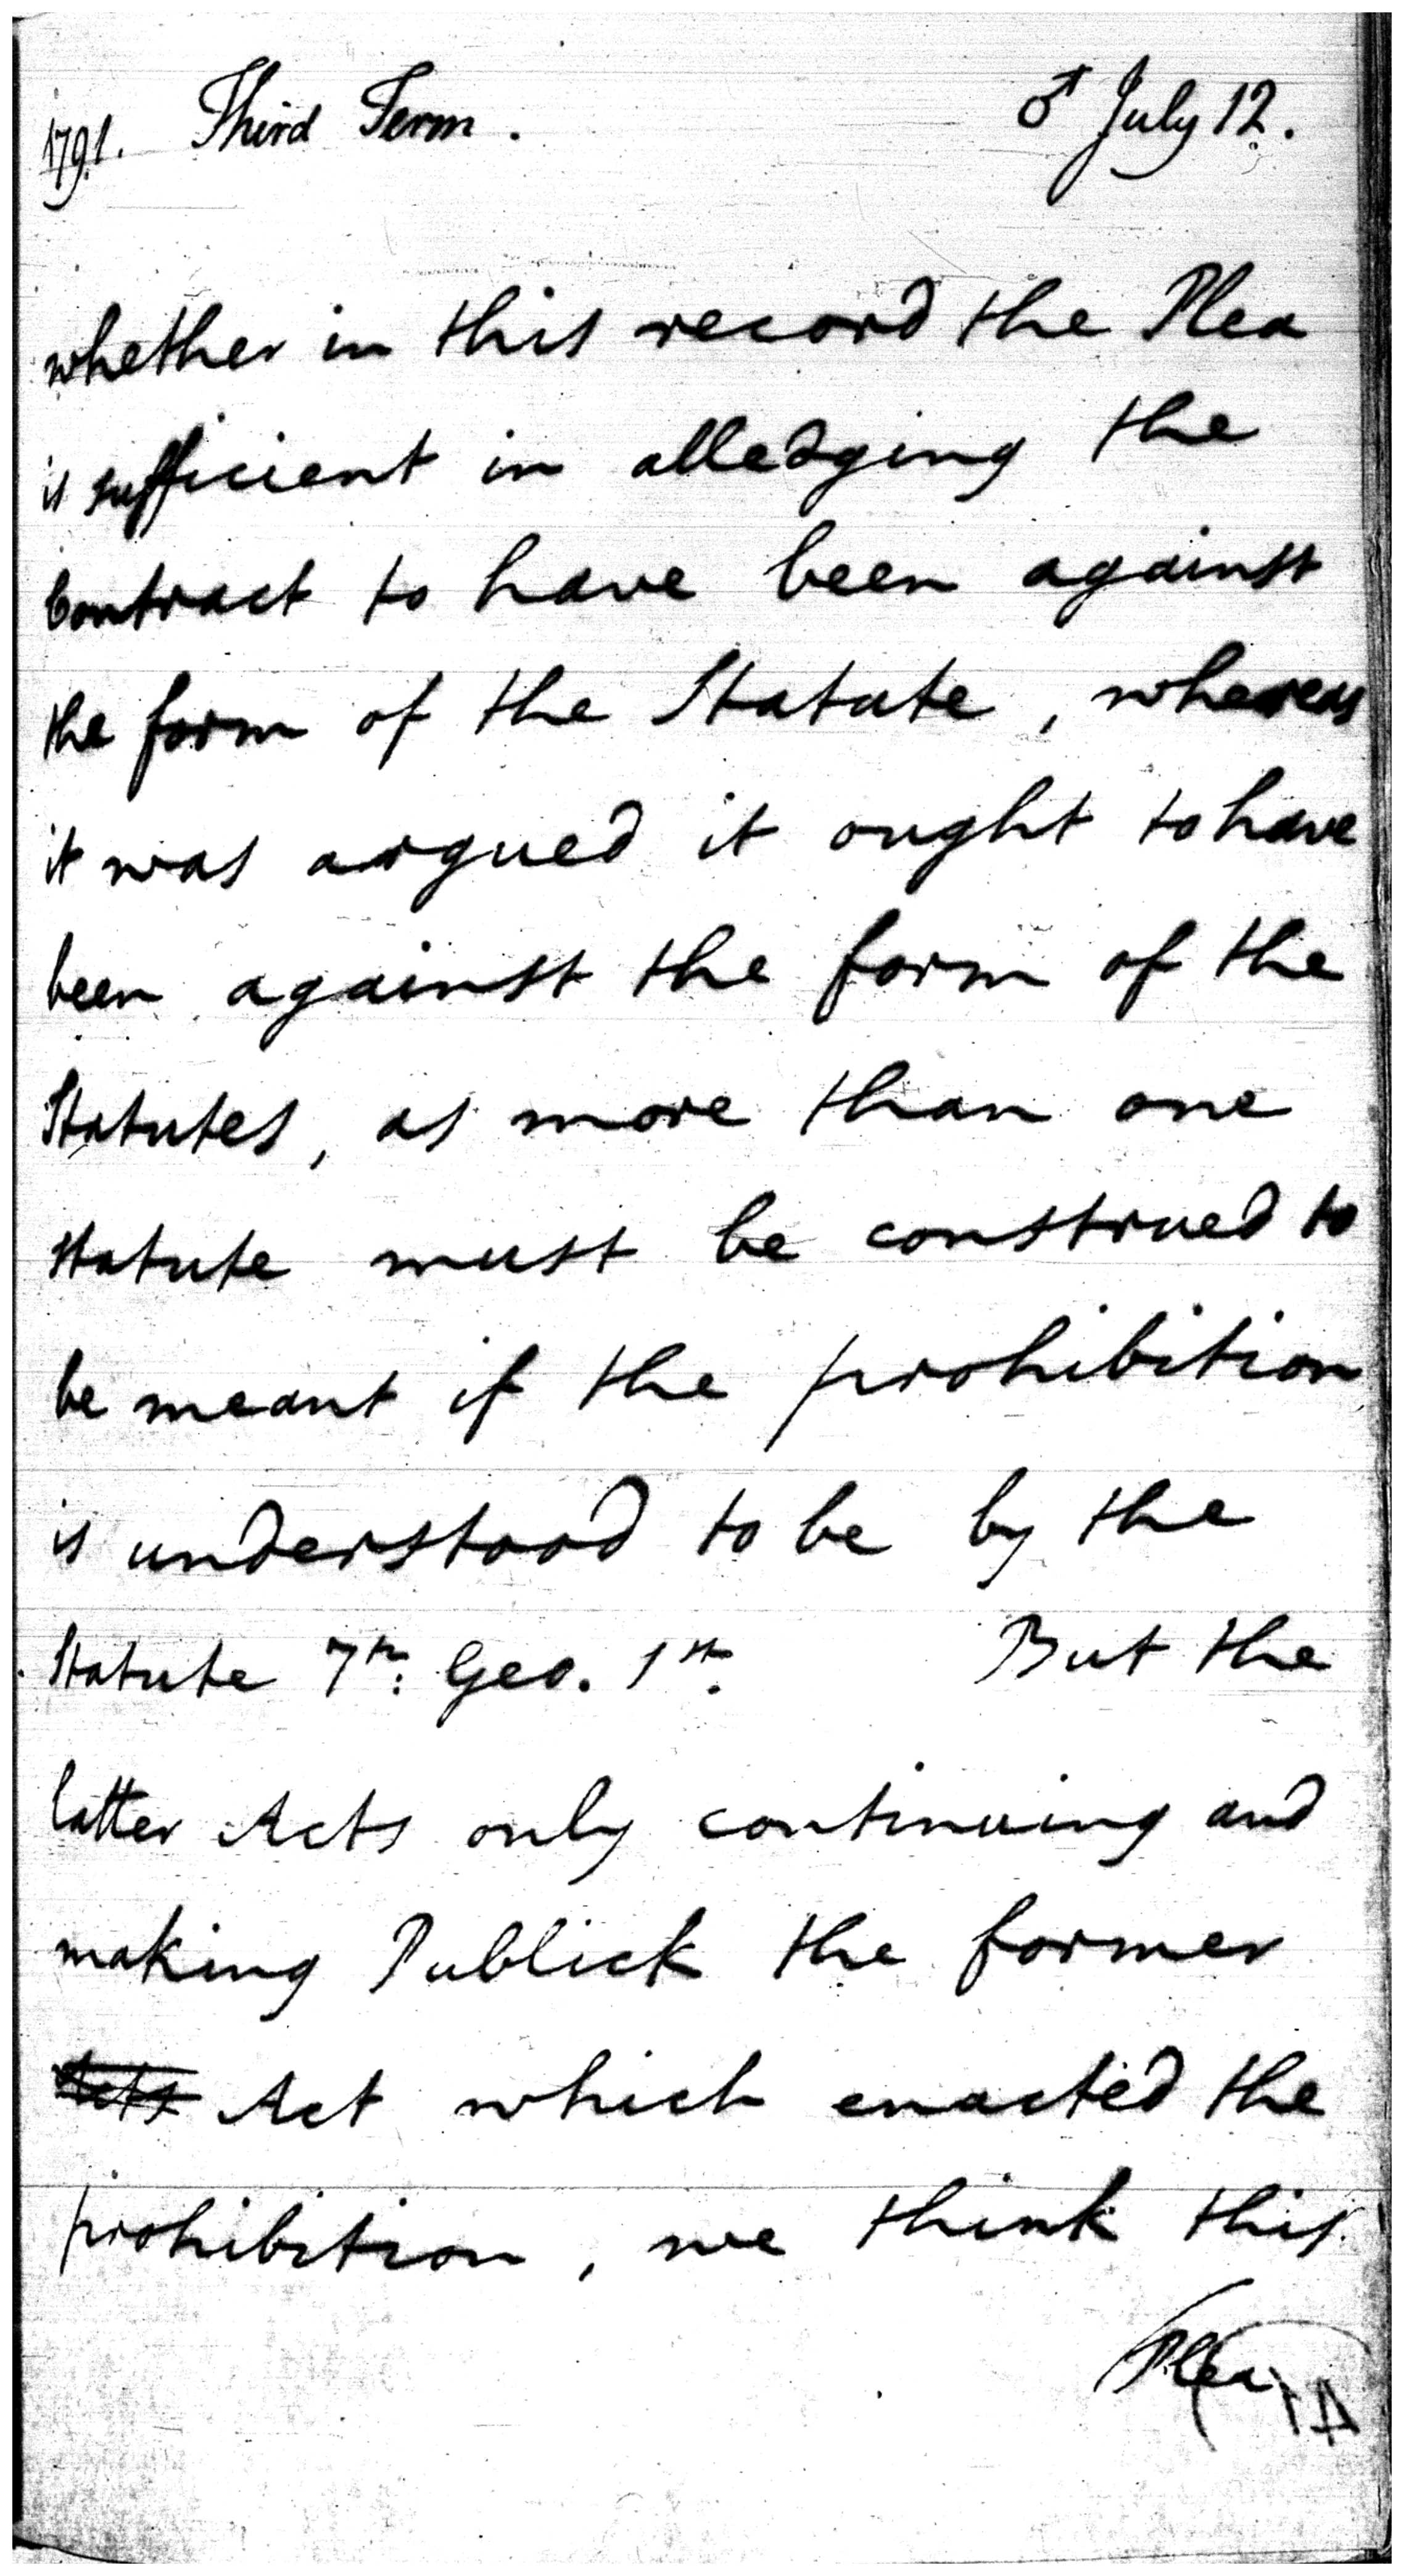 1791. Third Term. ♂ July 12.
whether in this record the Plea
is sufficient in alledging the
Contract to have been against
the form of the Statute, whereas
it was argued it ought to have
been against the form of the
Statutes, as more than one
statute must be construed to
be meant if the prohibition
is understood to be by the
Statute 7th: Geo. 1st. But the
latter Acts only continuing and
making Publick the former
Acts Act which enacted the
prohibition, we think this
Plea
41